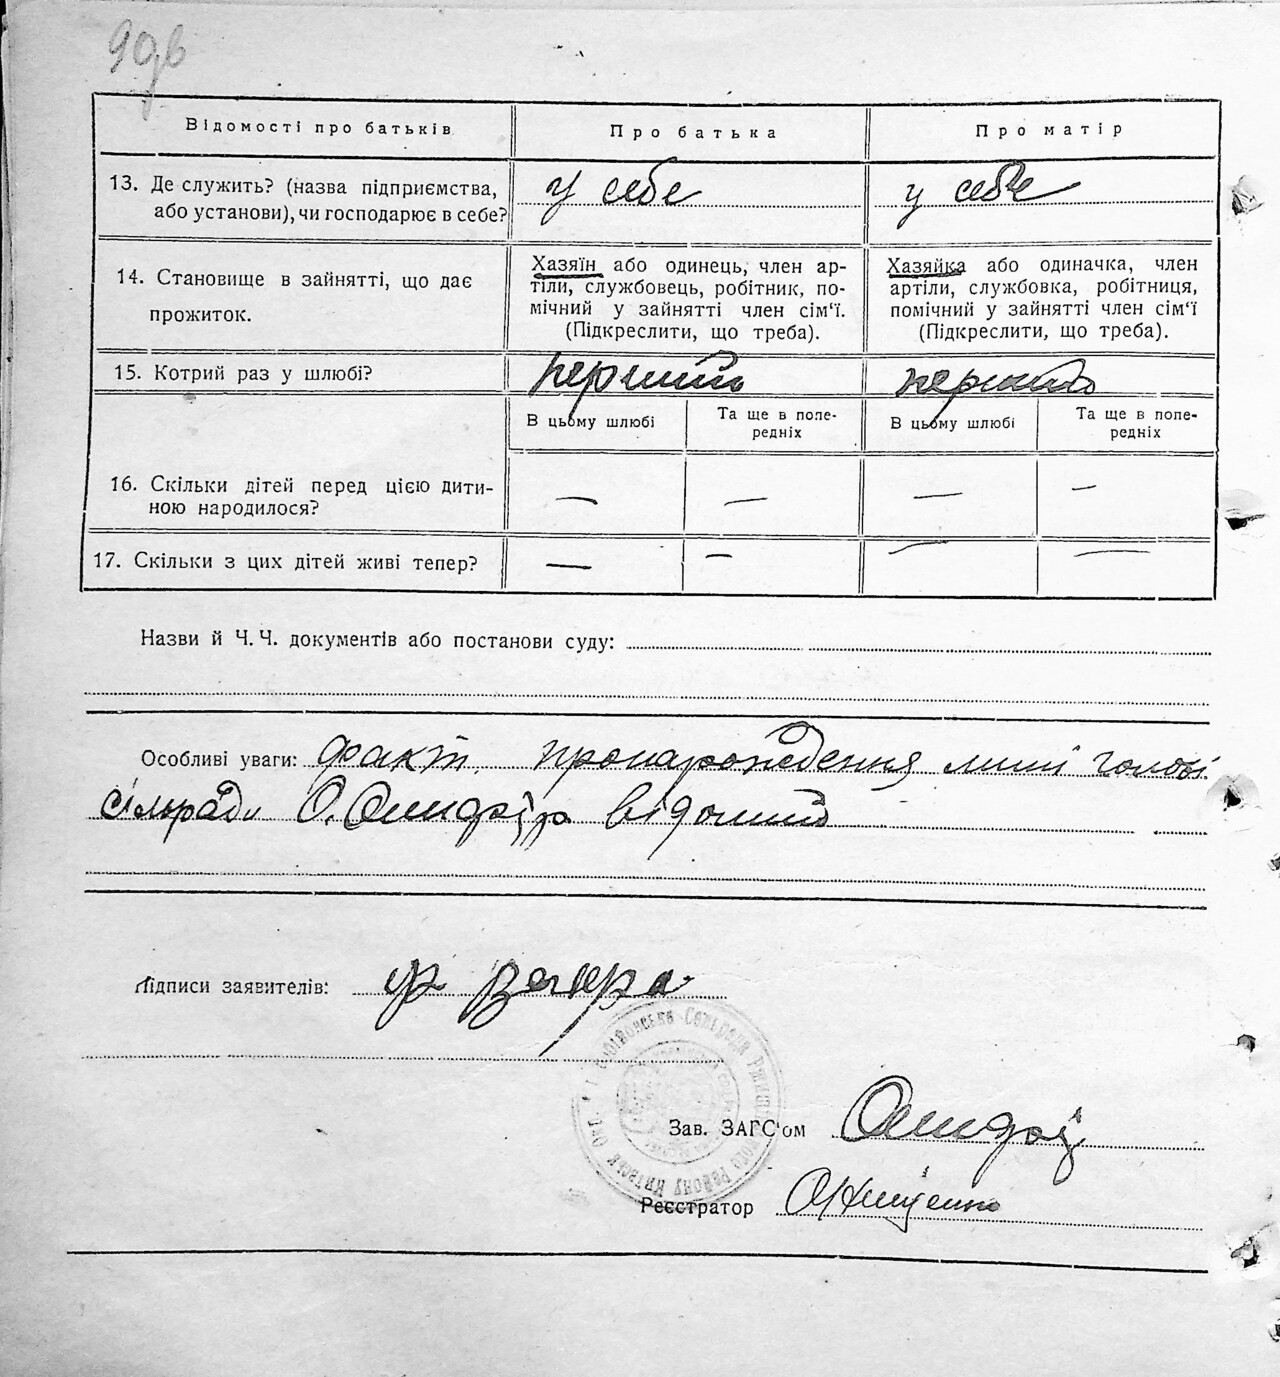 Відомості про батьків
Про батька
Про матір
13. Де служить? (назва підприємства, або установи), чи господарює в себе?
у себе
у себе
14. Становище в зайнятті, що дає прожиток.
Хазяїн або одинець, член ар-
тіли, службовець, робітник, по-
мічний у зайнятті член сім'ї.
(Підкреслити, що треба).
Хазяйка або одиначка, член
артіли, службовка, робітниця,
помічний у зайнятті член сім'ї
(Підкреслити, що треба).
15. Котрий раз у шлюбі?
перший
перший
В цьому шлюбі
Та ще в попе-
редніх
В цьому шлюбі
Та ще в попе-
редніх
16. Скільки дітей перед цією дити-
ною народилося?
— — — —
17. Скільки з цих дітей живі тепер?
— — — —
Назви й Ч. Ч. документів або постанови суду:
Особливі уваги: факт народження мині голові
сільради відомий
Підписи заявителів:
Зав. ЗАГС'ом
Реєстратор Оніщенко